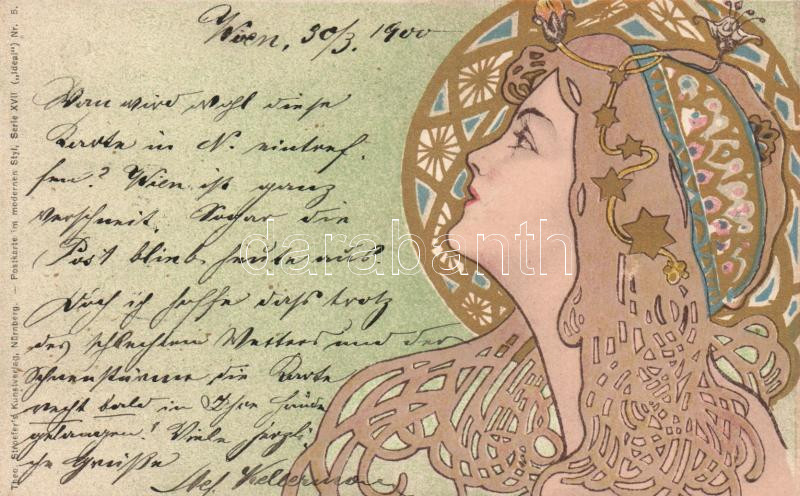 Wien, 30/3. 1900
Wan wird wohl diese
Karte in N. eintref-
fen? Wien ist ganz
verschneit. Sogar die
Post blieb heute aus.
Doch ich hoffe dass trotz
des schlechten Wetters und der
Schneestürme die Karte
recht bald in Ihre Hände
gelangen! Viele herzli-
che Grüße
Kellerman
Theo. Stroefer's Kunstverlag, Nürnberg. — Postkarte im modernen Styl, Serie XVII („Ideal“) Nr. 5.
darabanth